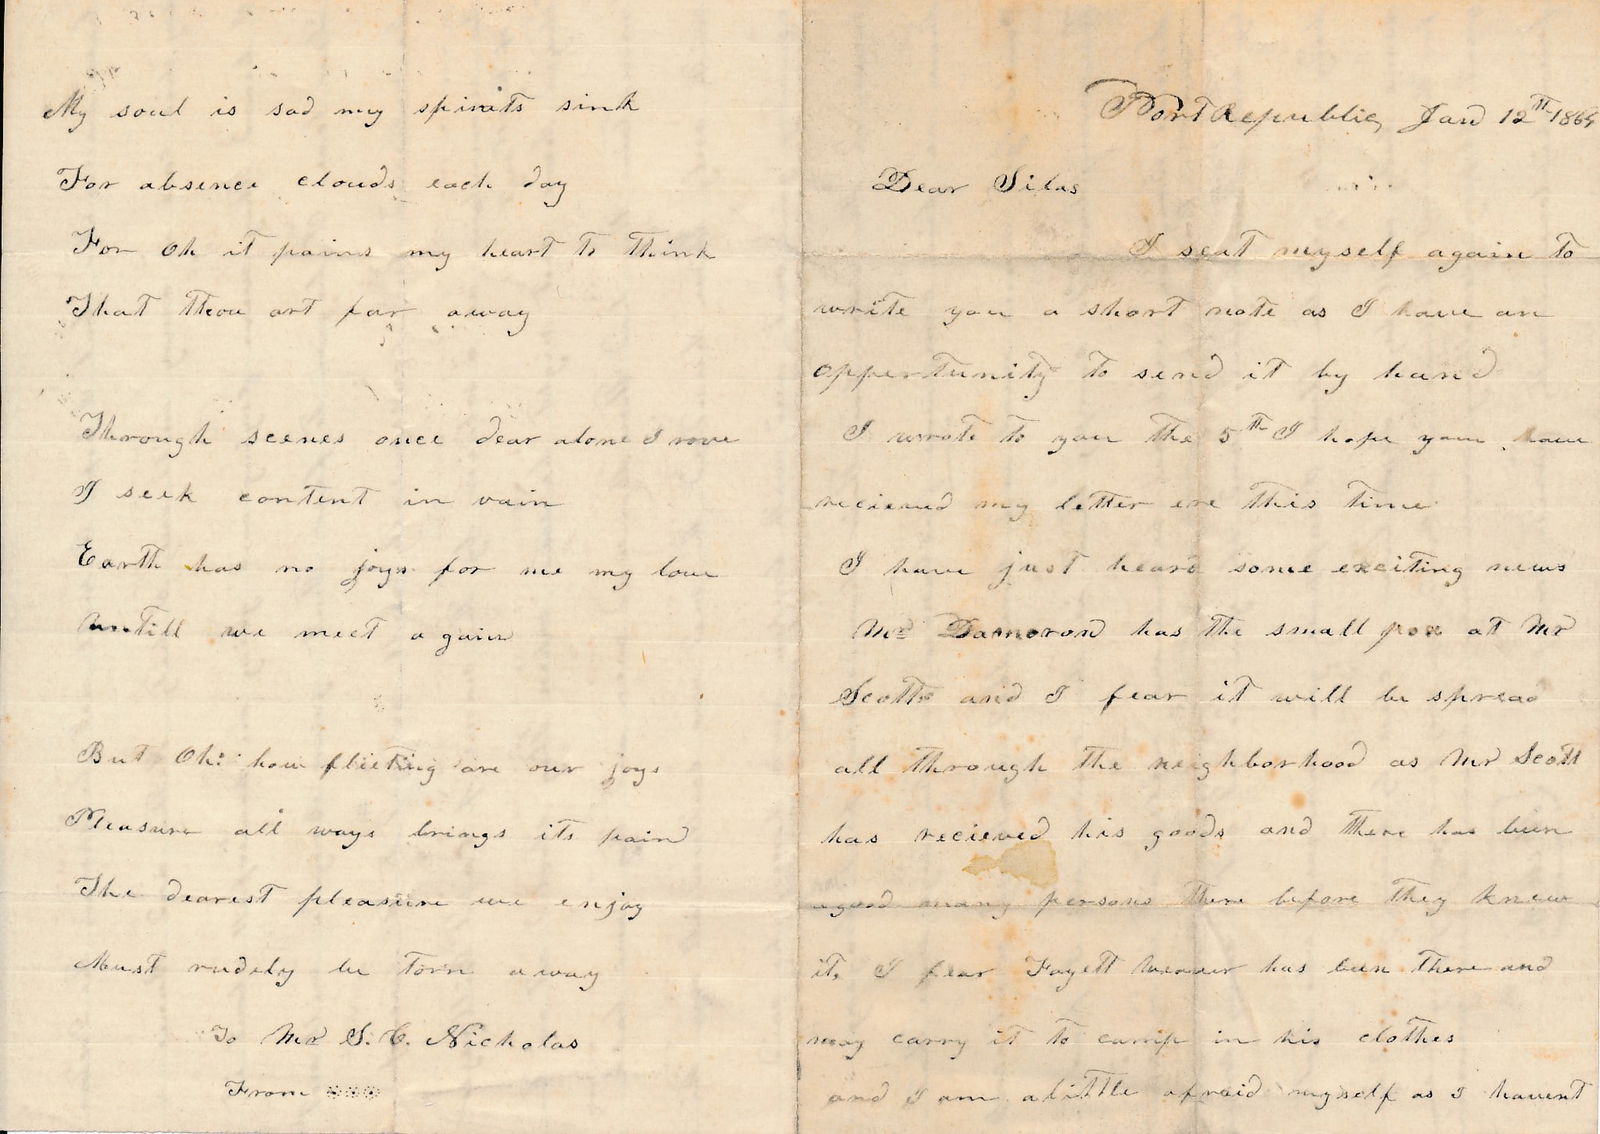 My soul is sad my spirits sink
For absence clouds each day
For Oh it pains my heart to think
That thou art far away
Through scenes once dear alone I rove
I seek content in vain
Earth has no joys for me my love
Untill we meet again
But Oh! how flieting are our joys
Pleasure all ways brings its pain
The dearest pleasure we enjoy
Must rudely be torn away
To Mr S. C. Nicholas
From ***
Port Republic, Jan 12th 1864
Dear Silas
I seat myself again to
write you a short note as I have an
oppertunity to send it by hand
I wrote to you the 5th I hope you have
recieved my letter ere this time
I have just heard some exciting news
Mr Dameron has the small pox at Mr
Scotts and I fear it will be spread
all through the neighborhood as Mr Scott
has recieved his goods and there has been
agood many persons there before they knew
it, I fear Fayett Weaver has been there and
may carry it to camp in his clothes
and I am alittle afraid myself as I havent